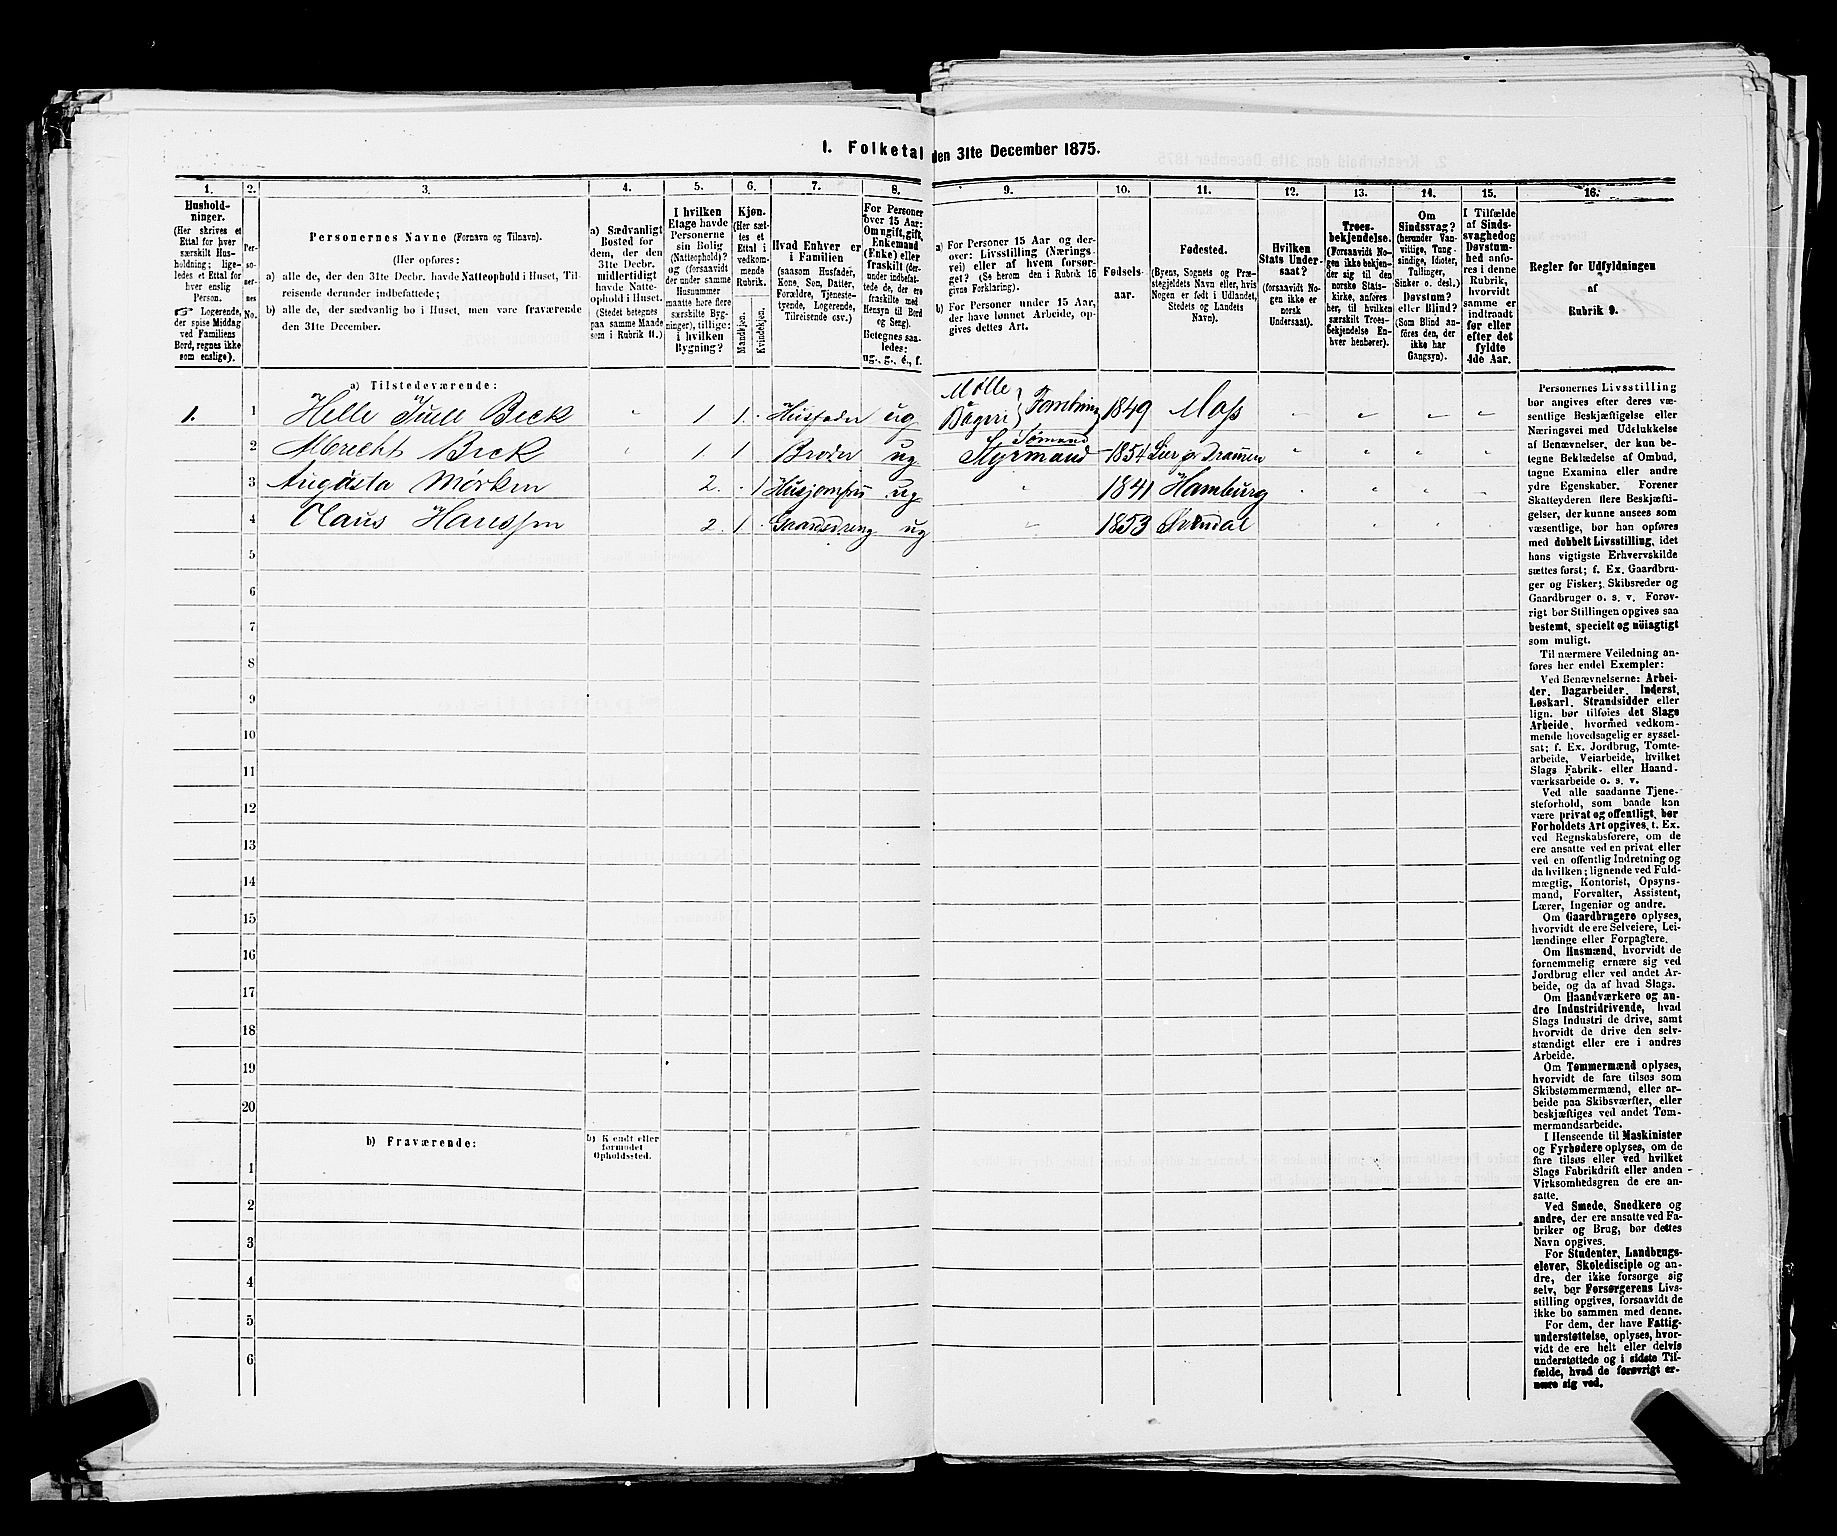 1. Folketal den 31te December 1875.
1. 2. 3. 4. 5. 6. 7. 8. 9. 10. 11. 12. 13. 14. 15. 16.
Hushold-
ninger.
(Her skrives et
Ettal for hver
særskilt Hus-
holdning; lige-
ledes et Ettal for
hver enslig
Person.
☞ Logerende,
der spise Middag
ved Familiens
Bord, regnes ikke
som enslige).
Per-
so-
ner-
nes
No.
Personernes Navne (Fornavn og Tilnavn).
(Her opføres:
a) alle de, der den 31te Decbr. havde Natteophold i Huset, Til-
reisende derunder indbefattede;
b) alle de, der sædvanlig bo i Huset, men vare fraværende
den 31te December.
a) Sædvanligt
Bosted for
dem, der den
31te Decbr.
midlertidigt
havde Natte-
ophold i Huset.
(Stedet betegnes
paa samme Maade
som i Rubrik 11.)
I hvilken
Etage havde
Personerne
sin Bolig
(Natteophold)?
og (forsaavidt
der under samme
Husnummer
maatte høre flere
særskilte Byg-
ninger), tillige:
i hvilken
Bygning?
Kjøn.
(Her sæt-
tes et
Ettal i
vedkom-
mende
Rubrik.
Mandkjøn.
Kvindekjøn.
Hvad Enhver er
i Familien
(saasom Husfader,
Kone, Søn, Datter,
Forældre, Tjeneste-
tyende, Logerende,
Tilreisende osv.)
For Personer
over 15 Aar:
Om ugift, gift,
Enkemand
(Enke) eller
fraskilt (der-
under indbefat-
tede de, der ere
fraskilte med
Hensyn til Bord
og Seng).
Betegnes saa-
ledes:
ug., g., e., f.
a) For Personer 15 Aar og der-
over: Livsstilling (Nærings-
vei) eller af hvem forsør-
get? (Se herom den i Rubrik 16
givne Forklaring).
b) For Personer under 15 Aar,
der have lønnet Arbeide, op-
gives dettes Art.
Fødsels-
aar.
Fødested.
(Byens, Sognets og Præ-
stegjeldets Navn eller, hvis
Nogen er født i Udlandet,
Stedets og Landets
Navn).
Hvilken
Stats Under-
saat?
(forsaavidt No-
gen ikke er
norsk
Undersaat).
Troes-
bekjendelse.
(Forsaavidt No-
gen ikke bekjen-
der sig til den
norske Stats-
kirke, anføres
her, til hvilken
særskilt Troes-
bekjendelse En-
hver henhører).
Om
Sindssvag?
(herunder Van-
vittige, Tung-
sindige, Idioter,
Tullinger,
Sinker o. desl.)
Døvstum?
eller Blind?
(Som Blind an-
føres den, der
ikke har
Gangsyn).
I Tilfælde
af Sinds-
svaghed og
Døvstum-
hed anfø-
res i denne
Rubrik,
hvorvidt
samme er
indtraadt
før eller
efter det
fyldte
4de Aar.
Regler for Udfyldningen
af
Rubrik 9.
a) Tilstedeværende:
1. 1 Helle Juell Beck 1 1. Husfader ug Mølle Bageri 1849 Moss
2 Albrecht Beck 1 1 Broder ug Styrmand Sømand 1854 Lier pr Dramen
3 Augusta Mørken 2. 1 Husjomfru ug 1841 Hamburg
4 Claus Hanssen 2. 1. Gaardsdreng ug 1853
5
6
7
8
9
10
11
12
13
14
15
16
17
18
19
20
b) Fraværende:
b) Kjendt eller
formodet
Opholdssted.
1
2
3
4
5
6
Personernes Livsstilling
bør angives efter deres væ-
sentlige Beskjæftigelse eller
Næringsvei med Udelukkelse
af Benævnelser, der kun be-
tegne Beklædelse af Ombud,
tagne Examina eller andre
ydre Egenskaber. Forener
Skatteyderen flere Beskjæfti-
gelser, der kunne ansees som
væsentlige, bør han opføres
med dobbelt Livsstilling, idet
hans vigtigste Erhvervskilde
sættes først; f. Ex. Gaardbru-
ger og Fisker; Skibsreder og
Gaardbruger o. s. v. Forøv-
rigt bør Stillingen opgives saa
bestemt, specielt og nöiagtigt
som muligt.
Til nærmere Veiledning an-
føres her endel Exempler:
Ved Benævnelserne: Arbei-
der, Dagarbeider, Inderst,
Løskarl, Strandsidder eller
lign. bør tilføies det Slags
Arbeide, hvormed vedkom-
mende hovedsagelig er syssel-
sat; f. Ex. Jordbrug, Tomte-
arbeide, Veiarbeide, hvilket
Slags Fabrik- eller Haand-
værksarbeide o. s. v.
Ved alle saadanne Tjene-
steforhold, som baade kan
være privat og offentligt, bør
Forholdets Art opgives, t. Ex.
ved Regnskabsførere, om de
ere ansatte ved en privat eller
ved en offentlig Indretning og
da hvilken; lignende ved Fuld-
mægtig, Kontorist, Opsyns-
mand, Forvalter, Assistent,
Lærer, Ingeniør og andre.
Om Gaardbrugere oplyses,
hvorvidt de ere Selveiere, Lei-
lændinge eller Forpagtere.
Om Husmænd, hvorvidt de
fornemmelig ernære sig ved
Jordbrug eller ved andet Ar-
beide, og da af hvad Slags.
Om Haandværkere og an-
dre Industridrivende, hvad
Slags Industri de drive, samt
hvorvidt de drive den selv-
stændigt eller ere i andres
Arbeide.
Om Tømmermænd oplyses,
hvorvidt de fare tilsøs som
Skibstømmermænd, eller ar-
beide paa Skibsværfter, eller
beskjæftiges ved andet Tøm-
mermandsarbeide.
I Henseende til Maskinister
og Fyrbødere oplyses, om de
fare tilsøs eller ved hvilket
Slags Fabrikdrift eller anden
Virksomhedsgren de ere an-
satte.
Ved Smede, Snedkere og
andre, der ere ansatte ved Fa-
briker og Brug, bør dettes
Navn opgives.
For Studenter, Landbrugs-
elever, Skoledisciple og an-
dre, der ikke forsørge sig
selv, bør Forsørgerens Livs-
stilling opgives, forsaavidt de
ikke bo sammen med denne.
For dem, der have Fattig-
understøttelse, oplyses, hvor-
vidt de ere helt eller delvis
understøttede og i sidste Til-
fælde, hvad de forøvrigt er-
nære sig ved.